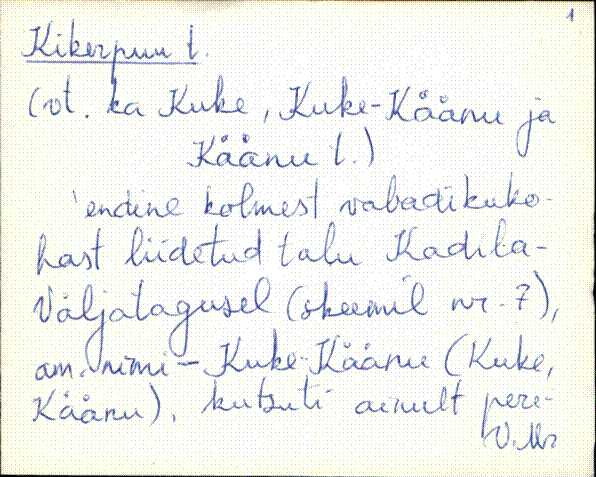 1
Kikerpuu t.
(vt. ka Kuke, Kuke-Käänu ja
Käänu t.)
'endine kolmest vabadikuko-
hast liidetud talu Kadila-
Väljatagusel (skeemil nr. 7),
am. nimi - Kuke-Käänu (Kuke,
Käänu), kutsuti ainult peri-
V.Mr